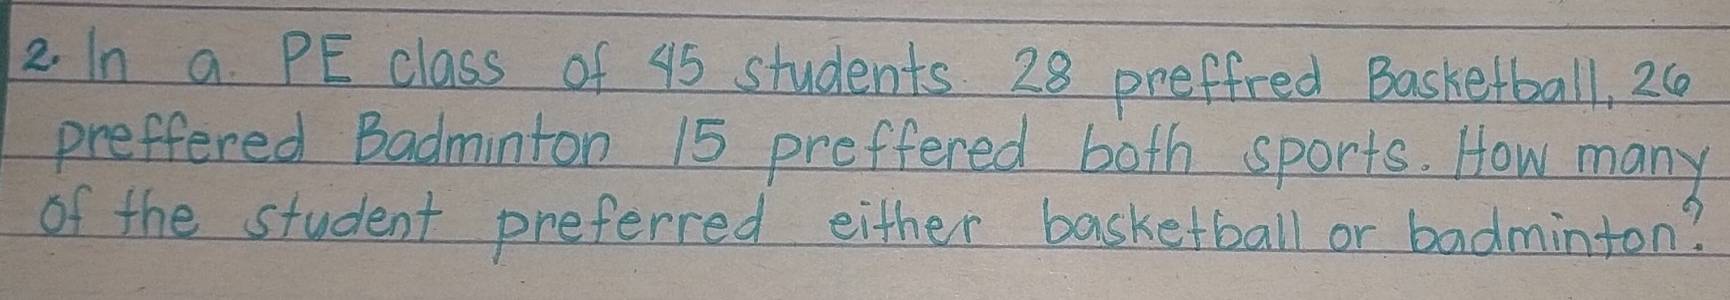 2. In a PE class of 45 students 28 preffred Basketball, 26
preffered Badminton 15 preffered both sports. How many
of the student preferred either basketball or badminton?